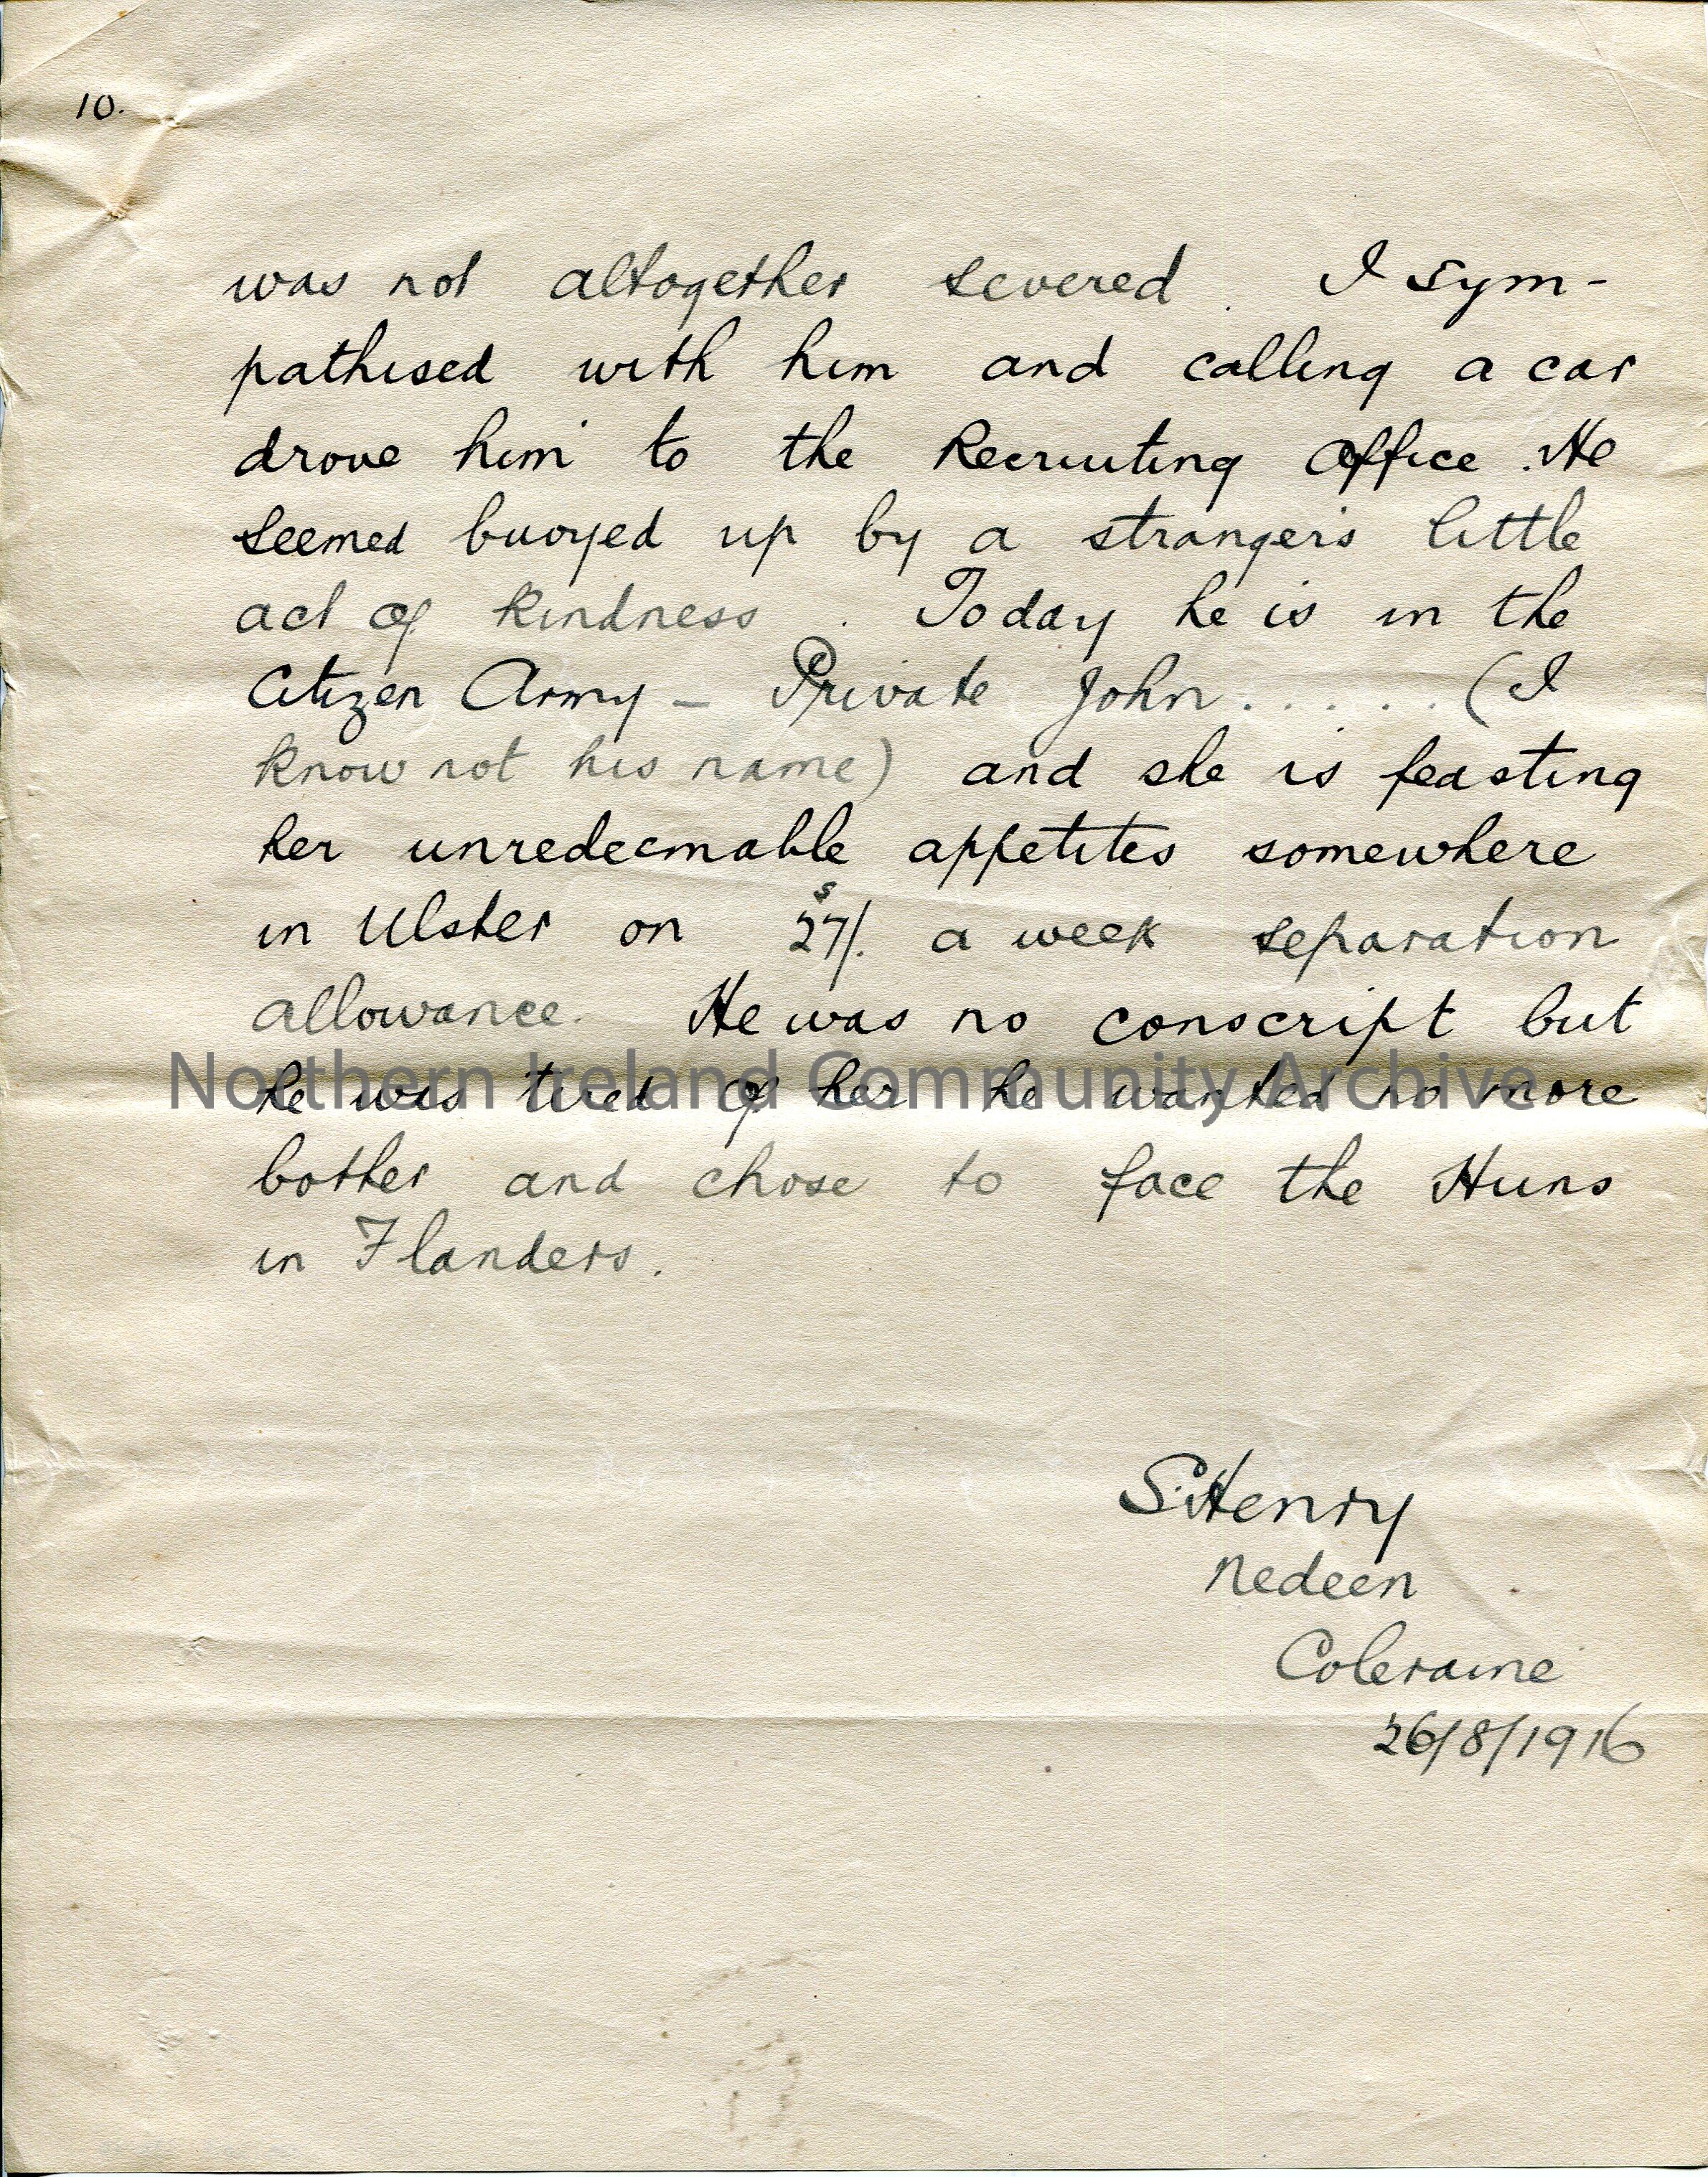 10.
was not altogether severed. I sym-
pathised with him and calling a car
drove him to the Recruiting Office. He
seemed buoyed up by a stranger's little
act of kindness. Today he is in the
Citizen Army - Private John..... (I
know not his name) and she is feasting
her unredeemable appetites somewhere
in Ulster on 27s/. a week separation
allowance. He was no conscript but
Northern Ireland Community Archive
he was tired of her he wanted no more
bother and chose to face the Huns
in Flanders.
S. Henry
Nedeen
Coleraine
26/8/1916